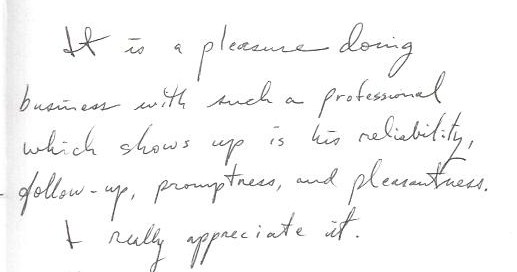 It is a pleasure doing
business with such a professional
which shows up is his reliability,
follow-up, promptness, and pleasantness.
I really appreciate it.